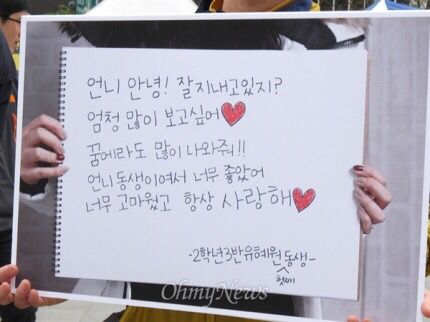 언니 안녕! 잘지내고있지?
엄청 많이 보고싶어♥
꿈에라도 많이 나와줘!!
언니동생이여서 너무 좋았어
너무 고마웠고 항상 사랑해♥
-2학년3반유혜원동생-
첫째
OhmyNews